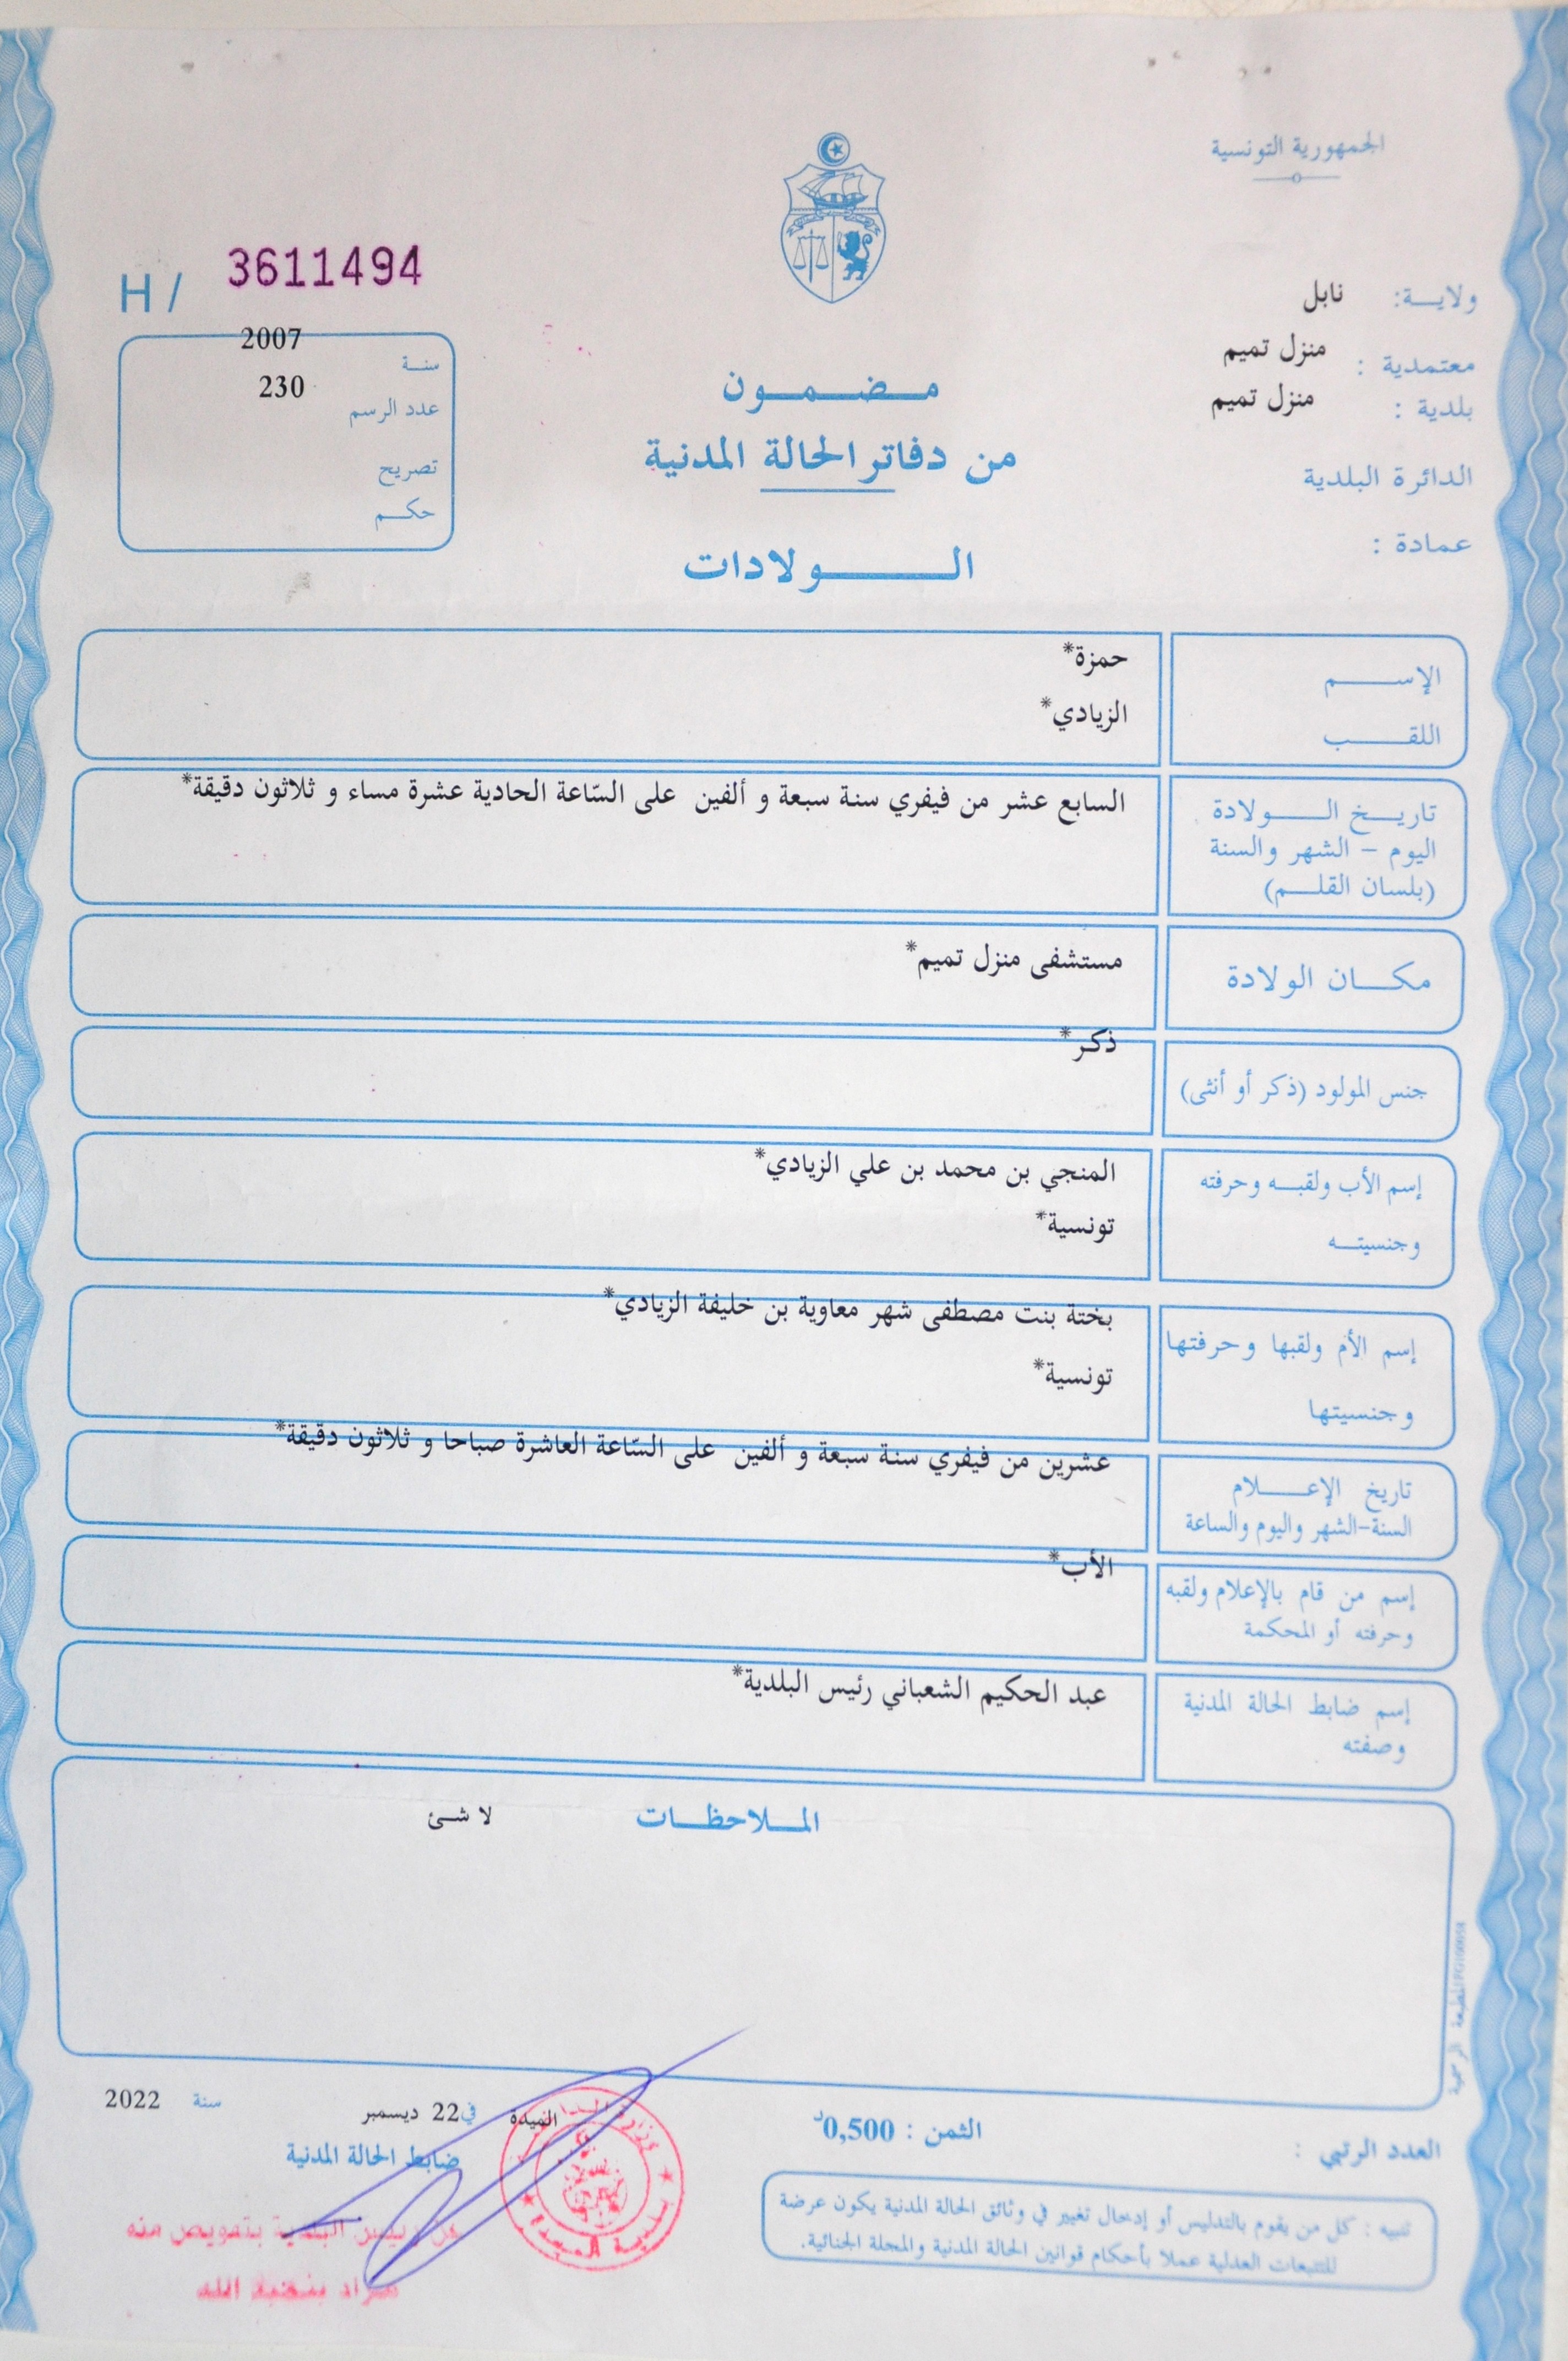 الجمهورية التونسية
H/ 3611494
ولايـــة: نابل
معتمدية : منزل تميم
بلدية : منزل تميم
الدائرة البلدية
عمادة :
سنــة 2007
عدد الرسم 230
تصريح
حكــم
مــضــمــون
من دفاتر الحالة المدنية
الــــولادات
الإســــم حمزة*
اللقــــب الزيادي*
تاريـــخ الــــولادة السابع عشر من فيفري سنة سبعة و ألفين على السّاعة الحادية عشرة مساء و ثلاثون دقيقة*
اليوم - الشهر والسنة
(بلسان القلـــم)
مكـــان الولادة مستشفى منزل تميم*
جنس المولود (ذكر أو أنثى) ذكر*
إسم الأب ولقبــه وحرفته المنجي بن محمد بن علي الزيادي*
وجنسيتــه تونسية*
إسم الأم ولقبها وحرفتها بختة بنت مصطفى شهر معاوية بن خليفة الزيادي*
وجنسيتها تونسية*
تاريخ الإعــــلام عشرين من فيفري سنة سبعة و ألفين على السّاعة العاشرة صباحا و ثلاثون دقيقة*
السنة-الشهر واليوم والساعة
إسم من قام بالإعلام ولقبه الأب*
وحرفته أو المحكمة
إسم ضابط الحالة المدنية عبد الحكيم الشعباني رئيس البلدية*
وصفته
المــلاحظــات لا شئ
المطبعة الرسمية
العدد الرتبي :
الثمن : 0,500د
الميدة في 22 ديسمبر سنة 2022
ضابط الحالة المدنية
عن رئيس البلدية بتفويض منه
مراد بنعبد الله
تنبيه : كل من يقوم بالتدليس أو إدخال تغيير في وثائق الحالة المدنية يكون عرضة
للتتبعات العدلية عملا بأحكام قوانين الحالة المدنية والمجلة الجنائية.